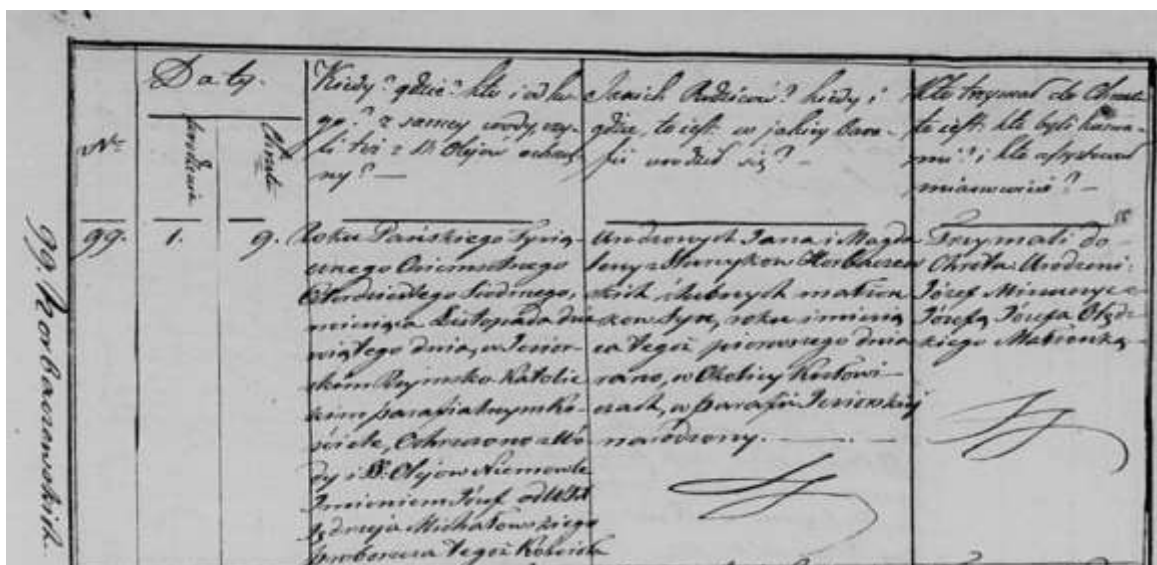 Nr.
Daty.
urodzenia
Chrztu
Kiedy? gdzie? kto i od ko-
go? z samey wody, czy-
li też z SS. Olejów ochrzczo-
ny? —
Jakich Rodziców? kiedy i
gdzie, to iest: w jakiey Para-
fii urodził się? —
Kto trzymał do Chrztu
to iest: kto byli kuma-
mi? i kto assystował
mianowicie? —
99. Korbaczewskich.
99.
1.
9.
Roku Pańskiego Tysią-
cznego Ośmsetnego
Czterdziestego Siodmego,
miesiąca Listopada dzie
wiątego dnia, w Jezior-
skim Rzymsko Katolic
kim parafialnym Ko-
ściele, Ochrzczono z Wo-
dy i SS. Olejow Niemowle
Imieniem Józef
Jędrzeja Michałowskiego
proboszcza tegoż Kościoła
Urodzonych Jana i Magda
leny z Korbaczew
skich ślubnych małżon
kow Syn, roku i miesią
ca tegoż pierwszego dnia
rano, w Okolicy
w parafii Jeziorskiej
narodzony. —
Trzymali do
Chrztu: Urodzeni:
Józef z
Józefą Józefa
kiego Małżonką. —